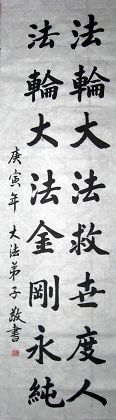 法輪大法救世度人
法輪大法金剛永純
庚寅年 大法弟子敬書